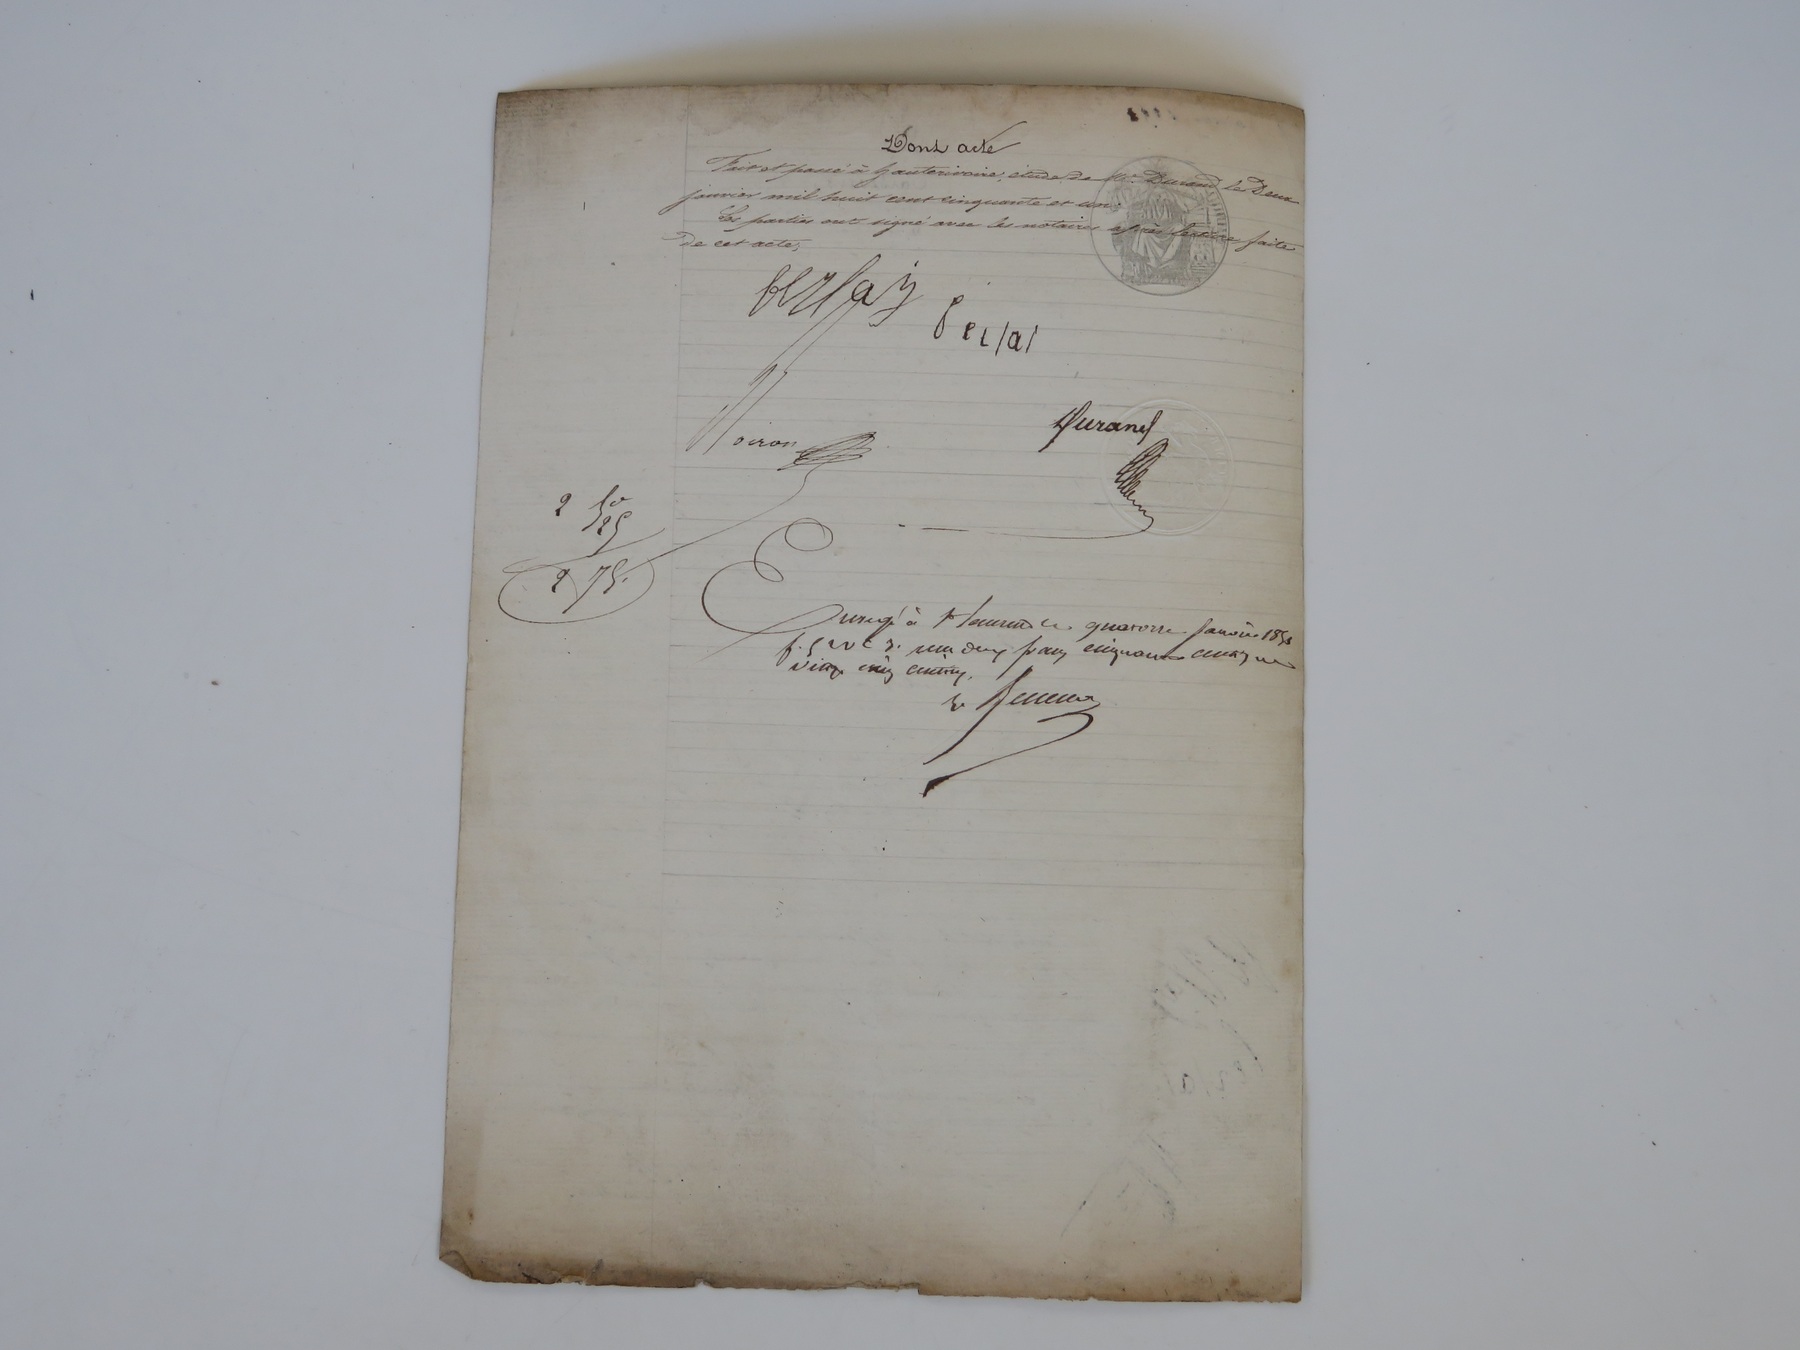 Dont acte
Fait et passé à hauterivoire, étude de Me. Durand le Deux
janvier mil huit cent cinquante et un.
Les parties ont signé avec les notaires après lecture faite
de cet acte,
Noiron
Durand
2 50
25
2 75.
Enregé à St Laurent le quatorze Janvier 1851
f. reçu deux francs cinquante centimes
vingt cinq centimes.